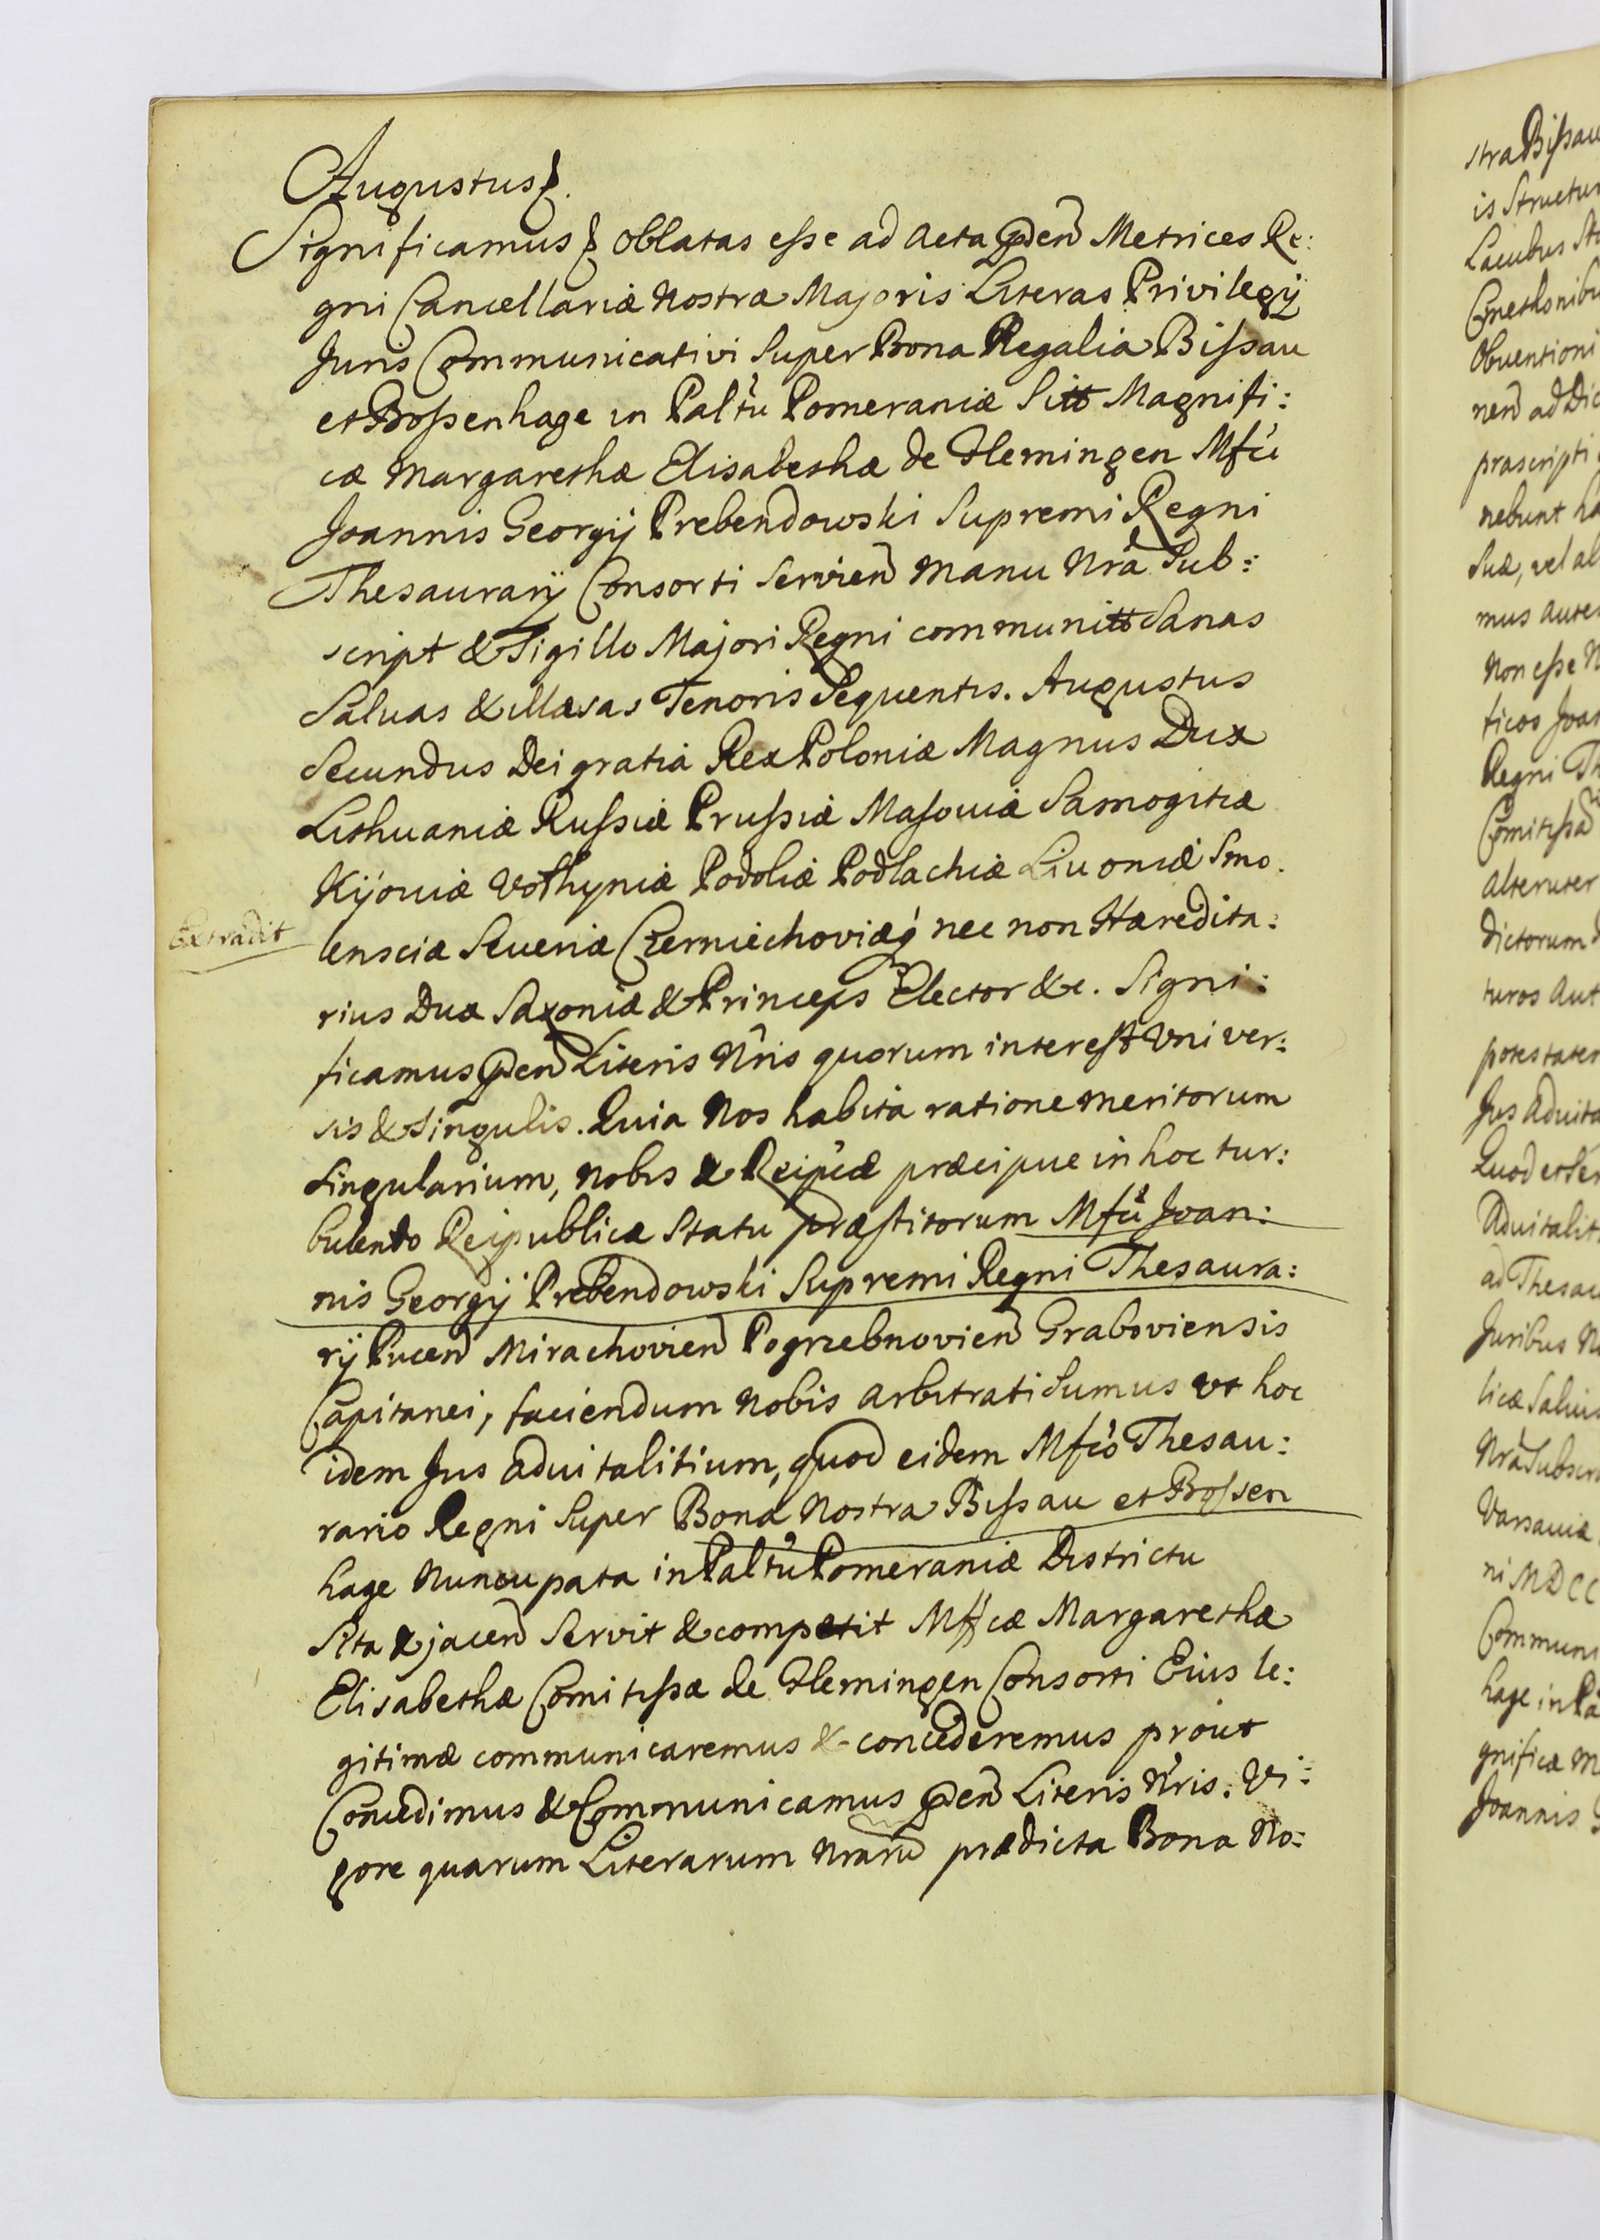 Augustus &.
Significamus & oblatas esse ad Acta pñen Metrices Re:
gni Cancellariæ Nostræ Majoris Literas Privilegÿ
Juris Communicativi Super Bona Regalia Bissau
et Bossenhage in Paltũ Pomeraniæ Sitt Magnifi:
cæ Margarethæ Elisabethæ de Flemingen Mfci
Joannis Georgÿ Prebendowski Supremi Regni
Thesaurarÿ Consorti Servien Manu Nrã Sub:
script & Sigillo Majori Regni communitt Sanas
Salvas & illæsas Tenoris Sequentis. Augustus
Secundus Dei gratiâ Rex Poloniæ Magnus Dux
Lithuaniæ Russiæ Prussiæ Masoviæ Samogitiæ
Kijoviæ Volhyniæ Podoliæ Podlachiæ Livoniæ Smo.
Extradit
lensciæ Severiæ Czerniechoviæq nec non Hæredita:
rius Dux Saxoniæ & Princeps Elector &c. Signi:
ficamus pñen Literis Nris quorum interest Univer:
sis & Singulis. Quia Nos habitâ ratione meritorum
singularium, Nobis & Reipcæ præcipue in hoc tur:
bulento Reipublicæ Statu præstitorum Mfci Joan:
nis Georgÿ Prebendowski Supremi Regni Thesaura:
rÿ Pucen Mirachovien Pogrzebnovien Graboviensis
Capitanei, faciendum Nobis arbitrati Sumus ut hoc
idem Jus Advitalitium, quod eidem Mfco Thesau:
rario Regni Super Bona Nostra Bissau et Bossen
hage Nuncupata in Paltũ Pomeraniæ Districtu
Sita & jacen Servit & competit Mfcæ Margarethæ
Elisabethæ Comitissæ de Flemingen Consorti Eius le:
gitimæ communicaremus & concederemus prout
Concedimus & Communicamus pñen Literis Nris. Vi:
gore quarum Literarum Nrarũ prædicta Bona No:
stra Bissau
is Structur
Lacubus
Cmethonibu
Obventioni
nen ad Dic
præscripti
nebunt ha
suæ, vel al
mus autem
Non esse N
ticos Joan
Regni Th
Comitissa
Alteruter
dictorum
turos Aut
potestatem
Jus Advita
Quod et Ser
Advitalit
ad Thesau
Juribus N
licæ Salvis
Nrã Subscri
Varsaviæ
ni MDCC
Communi
hage in Pa
gnificæ M
Joannis G